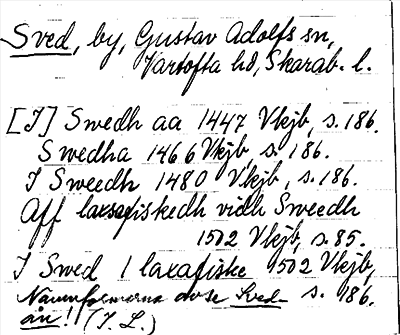 Sved, by, Gustav Adolfs sn,
Vartofta hd, Skarab. l.
[I] Swedh aa 1447 Vkjb, s. 186.
Swedha 1466 Vkjb, s. 186.
I Sweedh 1480 Vkjb, s. 186.
Aff laxafiskedh vidh Sweedh
1502 Vkjb, s. 85.
I Swed / laxafiske 1502 Vkjb,
Namnformerna avse Sved- s. 186.
ån! (I. L.)